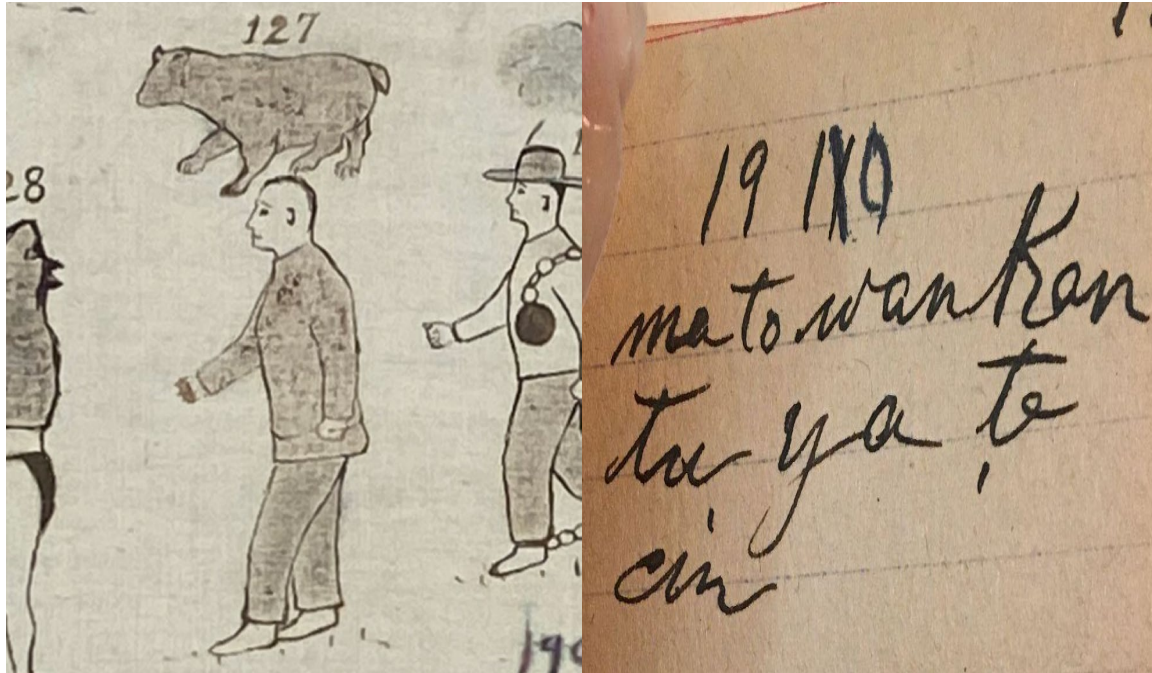 127
28
190
19
mato wankan
tu ya ṭe
cin